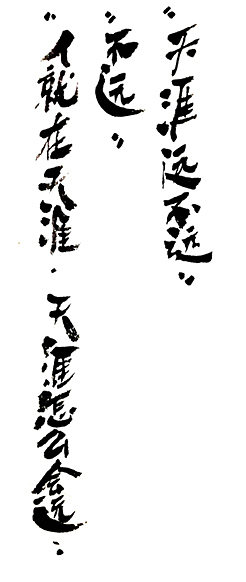 “天涯远不远”
“不远”
“人就在天涯·天涯怎么会远”